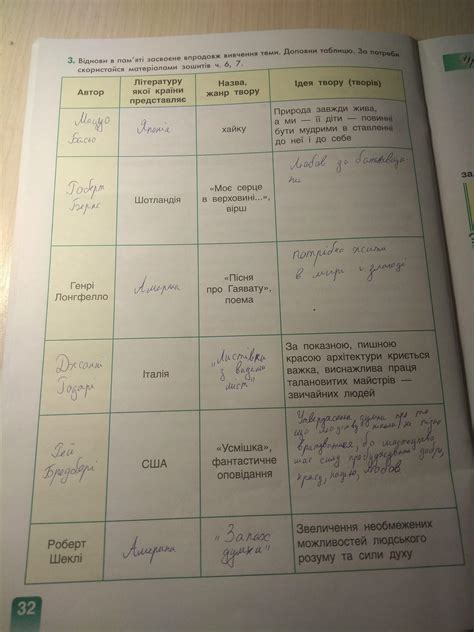 3. Віднови в пам'яті засвоєне впродовж вивчення теми. Доповни таблицю. За потреби
скористайся матеріалами зошитів ч. 6, 7.
Автор
Літературу
якої країни
представляє
Назва,
жанр твору
Ідея твору (творів)
Мацуо
Басьо
Японія
хайку
Природа завжди жива,
а ми — її діти — повинні
бути мудрими в ставленні
до неї і до себе
Роберт
Бернс
Шотландія
«Моє серце
в верховині...»,
вірш
Любов до батьківщи
ни
Генрі
Лонгфелло
Америка
«Пісня
про Гаявату»,
поема
потрібно жити
в мирі і злагоді
Джанні
Родарі
Італія
"Листівки
з видами
міст"
За показною, пишною
красою архітектури криється
важка, виснажлива праця
талановитих майстрів —
звичайних людей
Рей
Бредбері
США
«Усмішка»,
фантастичне
оповідання
думка про те
що людство не пізно
врятувати, бо мистецтво
має силу пробуджувати добро,
красу, надію, любов
Роберт
Шеклі
Америка
"Запах
думки"
Звеличення необмежених
можливостей людського
розуму та сили духу
32